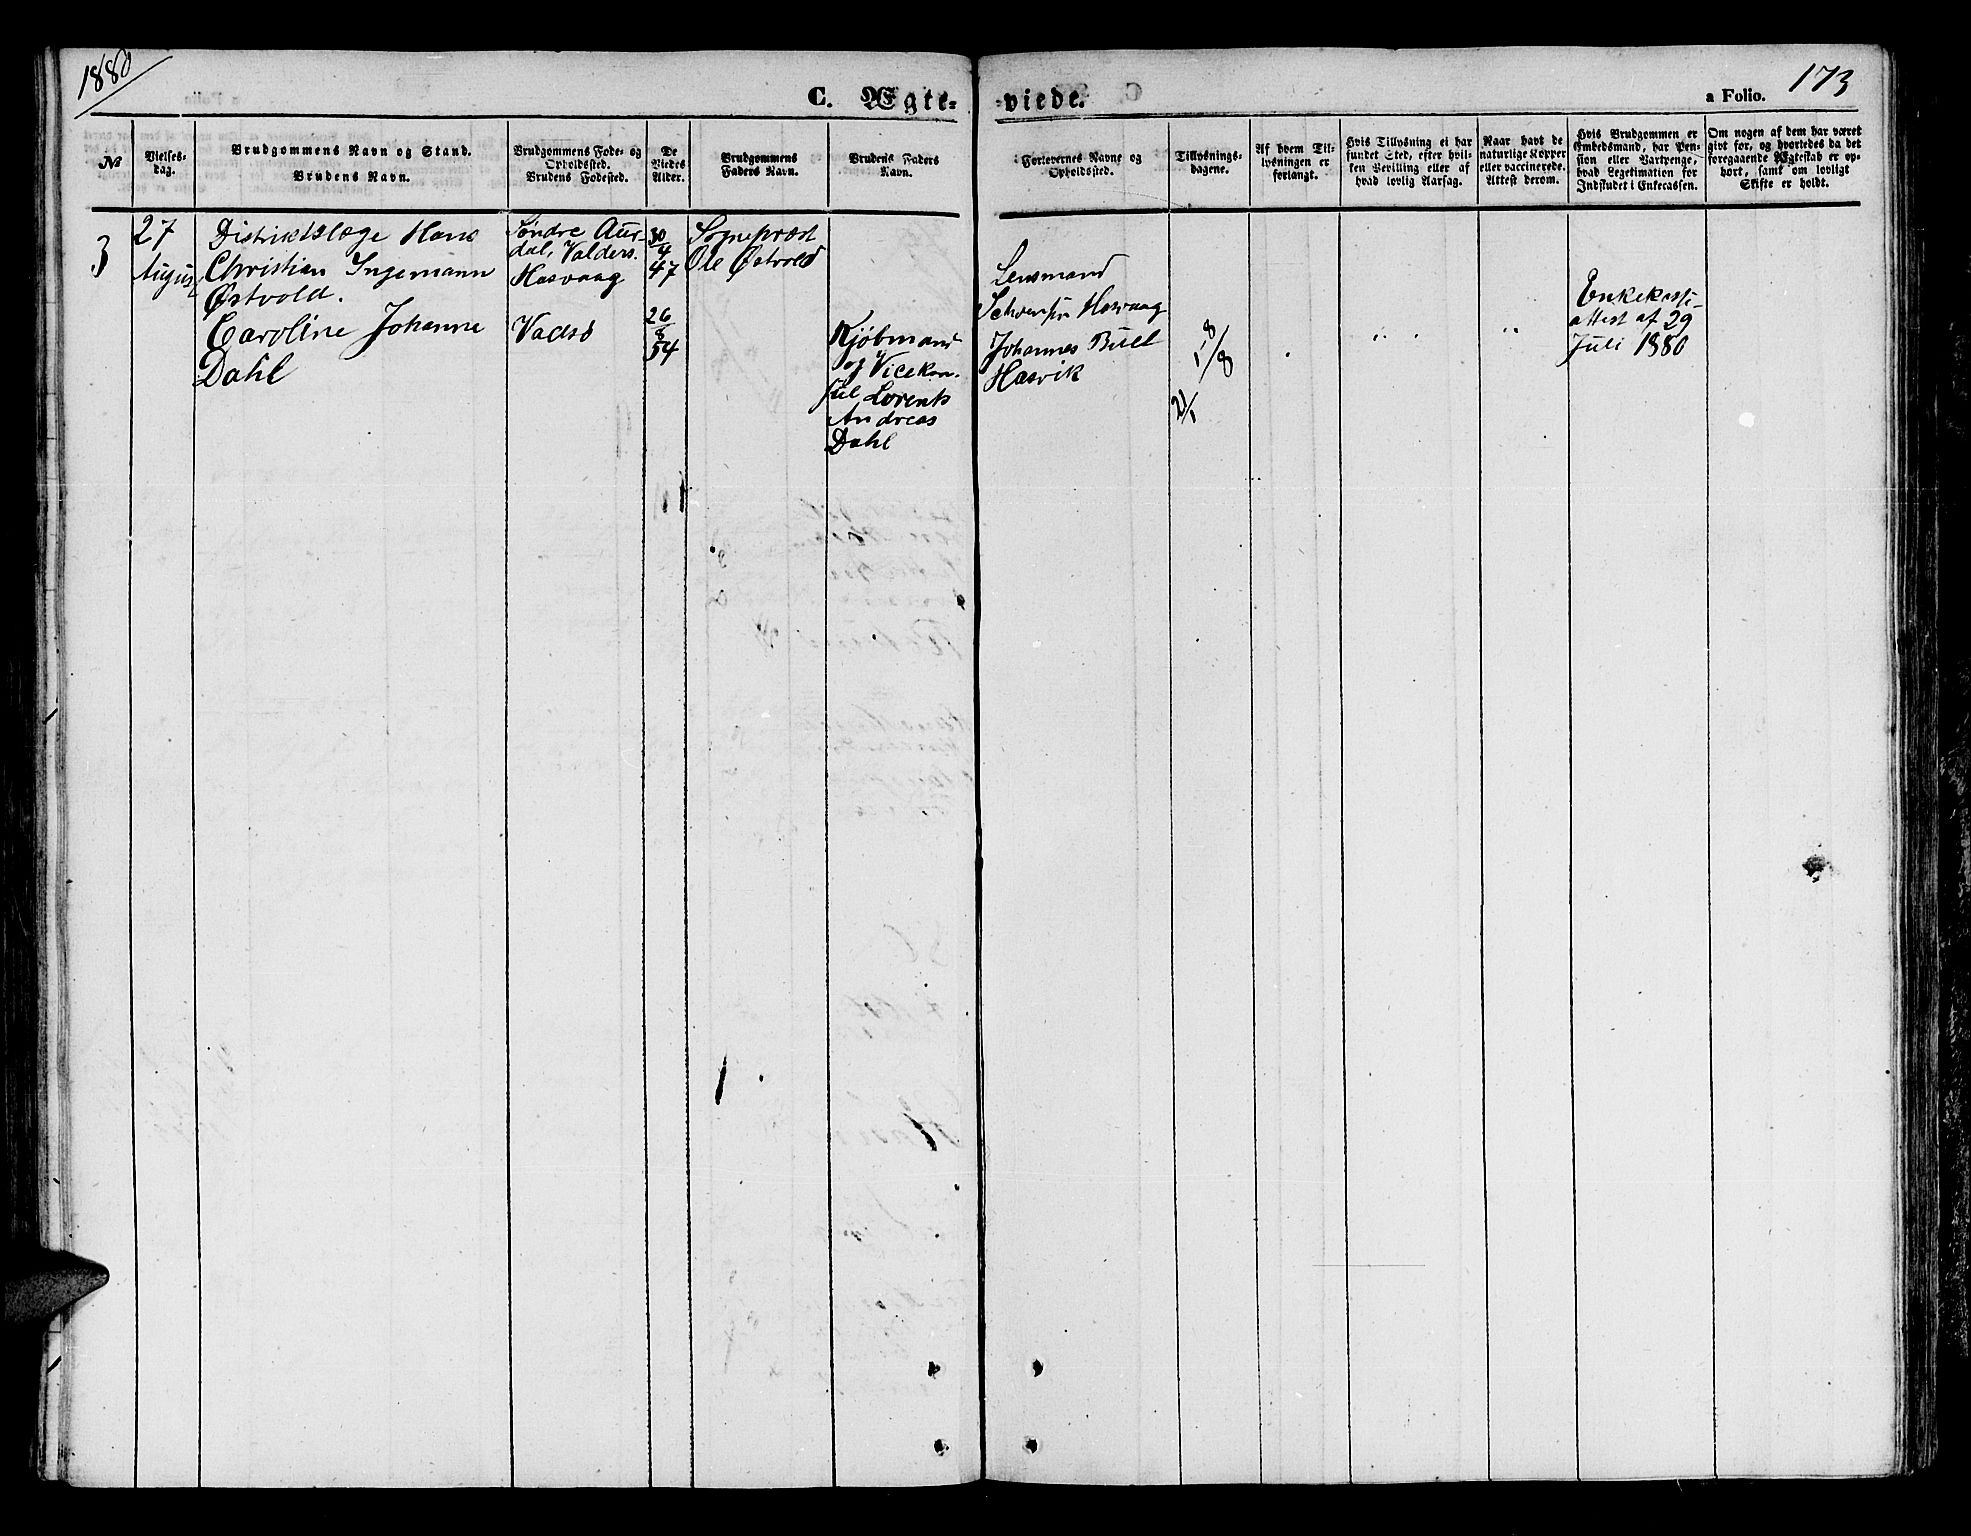 1880
C. Ægte-
viede.
a Folio.
173
№
Vielses-
dag.
Brudgommens Navn og Stand.
Brudens Navn.
Brudgommens Føde- og
Opholdssted.
Brudens Fødested.
De
Viedes
Alder.
Brudgommens
Faders Navn.
Brudens Faders
Navn.
Forlovernes Navne og
Opholdssted.
Tillysnings-
dagene.
Af hvem Til-
lysningen er
forlangt.
Hvis Tillysning ei har
fundet Sted, efter hvil-
ken Bevilling eller af
hvad lovlig Aarsag.
Naar havt de
naturlige Kopper
eller vaccinerede.
Attest derom.
Hvis Brudgommen er
Embedsmand, har Pen-
sion eller Vartpenge,
hvad Legetimation for
Indskudet i Enkecassen.
Om nogen af dem har været
givt før, og hvorledes da det
foregaaende Ægteskab er op-
hørt, samt om lovligt
Skifte er holdt.
3
27
August
Distriktslæge Hans
Christian Ingemann
Østvold.
Caroline Johanne
Dahl
Søndre Aur-
dal, Valders.
Hasvaag
Vadsø
30
4
47
26
8
54
Sogneprest
Ole Østvold
Kjøbmand
og Vicekon-
sul Lorents
Andreas
Dahl
Lensmand
Hasvaag
Johannes Bull
Hasvik
8
1/8
Enkekasse-
attest af 29
Juli 1880